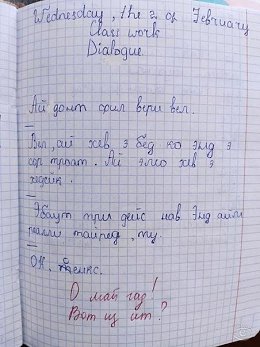 Wednesday, the 2 of February
Class work
Dialogue.
Ай донт фил вери вел.
—
Вел, ай хев э бед ко энд э
сор троат. Ай элсо хев э
хедейк.
—
Эбаут три дейс нав Энд айм
риалли тайред, ту.
—
Ок, тенкс.
О май гад!
Вот из ит?